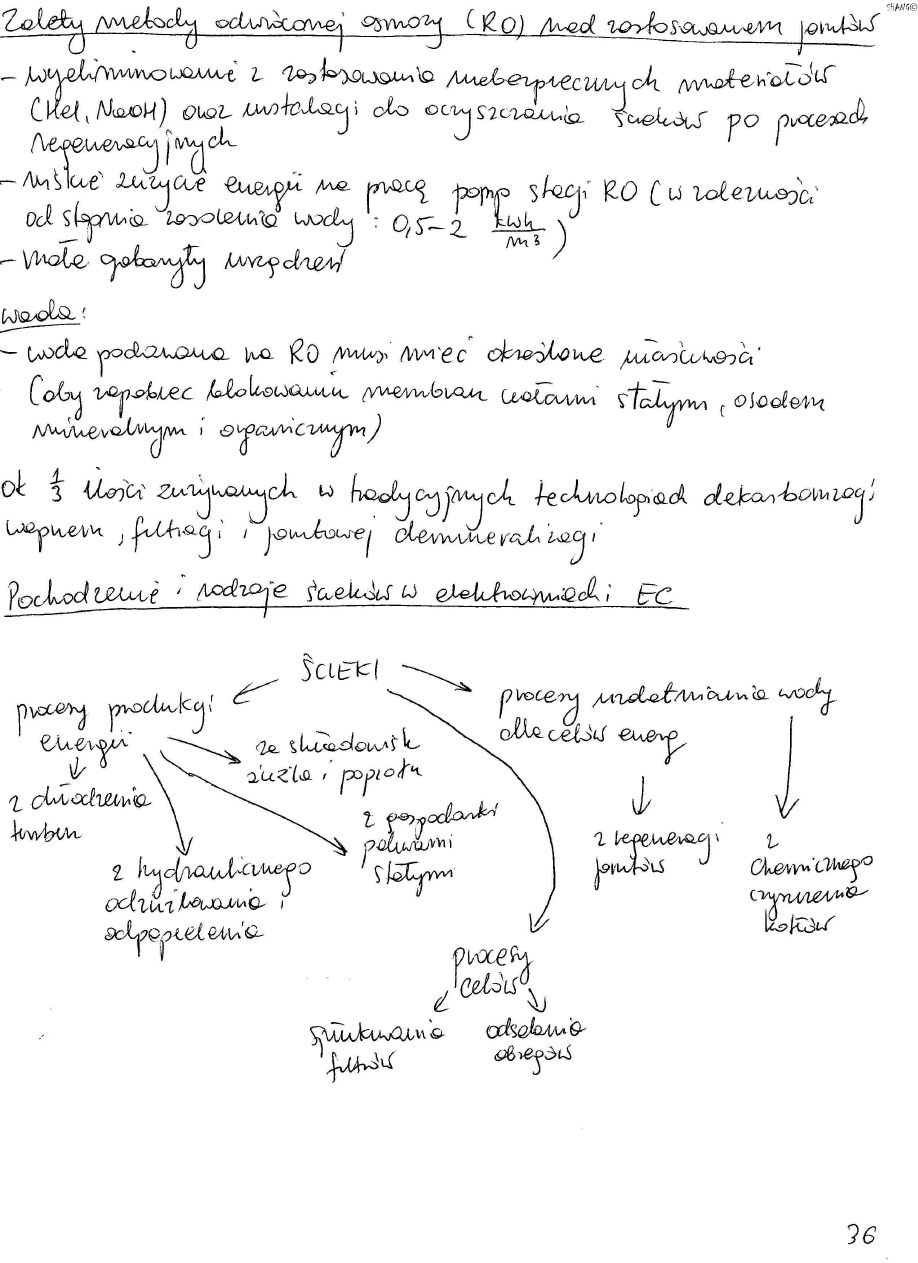 SHANG©
Zalety metody odwróconej osmozy (RO) nad zastosowaniem jonitów
- wyeliminowanie z zastosowania niebezpiecznych materiałów
(HCl, NaOH) oraz instalacji do oczyszczania ścieków po procesach
regeneracyjnych
- niskie zużycie energii na pracę pomp stacji RO (w zależności
od stopnia zasolenia wody : 0,5-2 kWh/m³)
- małe gabaryty urządzeń
wada:
- woda podawana na RO musi mieć określone właściwości
(aby zapobiec blokowaniu membran ciałami stałym, osadem
mineralnym i organicznym)
ok 1/3 ilości zużywanych w tradycyjnych technologiach dekarbonizacji
wapnem, filtracji i jonitowej demineralizacji
Pochodzenie i rodzaje ścieków w elektrowniach i EC
ŚCIEKI
procesy produkcji
energii
z chłodzenia
turbin
z hydraulicznego
odżużlowania i
odpopielenia
ze składowisk
żużla i popiołu
z gospodarki
paliwami
stałymi
procesy
celów
spłukiwania
filtrów
odsalania
obiegów
procesy uzdatniania wody
dla celów energ
z regeneracji
jonitów
z
chemicznego
czyszczenia
kotłów
36